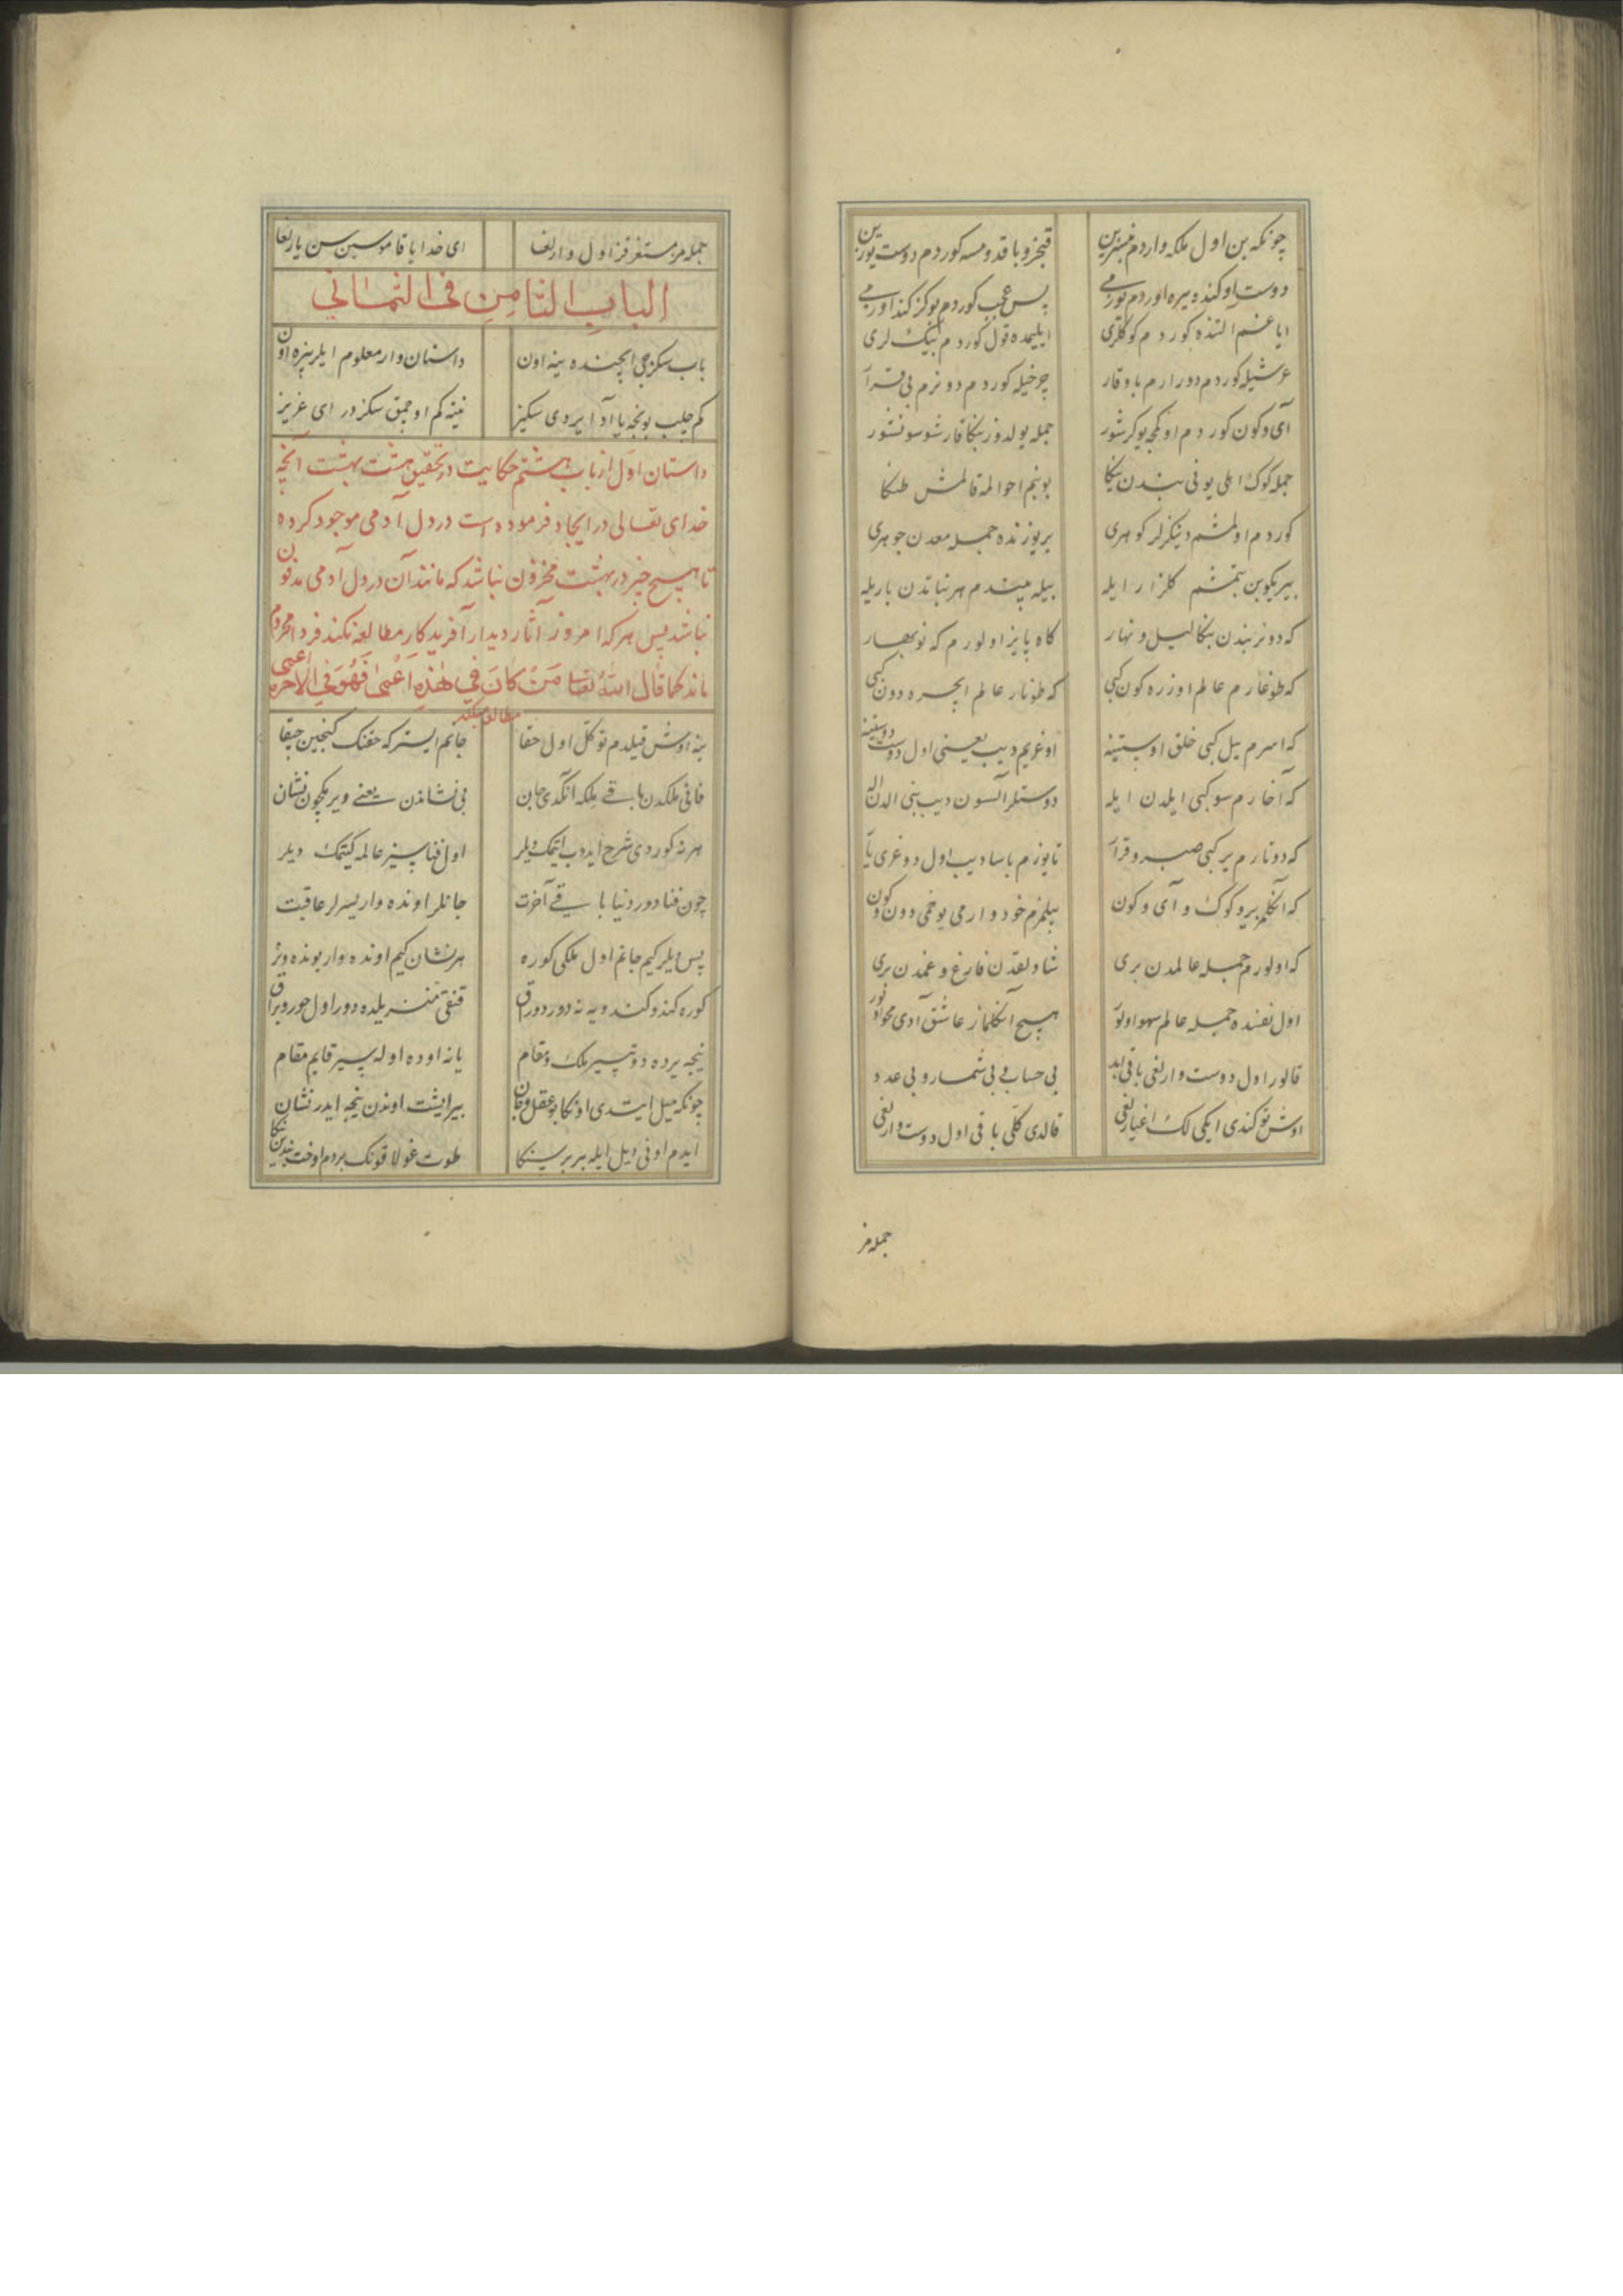 چونکه بن اول ملکه واردم بنزین قنجرو باقدومسه کوردم دوست یوزین
دوست اوکنده یره اوردم یوزمی پس عجب کوردم بو کز کندوزمی
ایاغم التنده کوردم کوکلری ایلیمده قول کوردم بیک لری
عرشیله کوردم دورارم باوقار چرخیله کوردم دونرم بی قرار
آی و کون کوردم اونمجه یوکرشور جمله یولدوز بنکا قارشو سونشور
جمله کوک اهلی یونی بندن ینکا بونجم احوالمه قالمش طنکا
کوردم اولمشم دینکزلر کوهری یریوزنده جمله معدن جوهری
بیریکوبن بتمشم کلزار ایله بیله بیتدم هر نباتدن باریله
که دونر بندن بنکا لیل و نهار کاه پاییز اولورم که نوبهار
که طوغارم عالم اوزره کون کبی که طونار عالم ایچره دون کبی
که اسرم ییل کبی خلق اوستینه اوغریم دیب یعنی اول دوست دوستینه
که آخارم سو کبی ایلدن ایله دوستلر آلسون دیب بنی الدن اله
که دوتارم یر کبی صبر و قرار تا یوزم باسا دیب اول دوغری یار
که آنکلمز یرو کوک و آی و کون بیلمزم خود وارمی یوخمی دون و کون
که اولورم جمله عالمدن بری شاولقدن فارغ و غمدن بری
اول نفسنده جمله عالم سهو اولور هیچ آنکلماز عاشق آدی محو اولور
قالور اول دوست وارلغی باقی ابد بی حساب و بی شمار و بی عدد
اوش توکندی ایکی لک اغیارلغی قالدی کلی باقی اول دوست وارلغی
جمله مز
جمله مز مستغرقز اول وارلغا ای خدا یا قاموسین سن یارلغا
الباب الثامن فی الثمانی
باب سکزنجی ایچنده ینه اون داستان وار معلوم ایلر بیزه اون
کم جلب بونجه یا آدا یردی سکیز نینه کم اوچمق سکزدر ای عزیز
داستان اول از باب هشتم حکایت در تحقیق هشت بهشت آنچه
خدای تعالی در ایجاد فرموده است در دل آدمی موجود کرده
تا هیچ چیز در بهشت مخزون نباشد که مانند آن در دل آدمی مدفون
نباشد پس هر که امروز آثار دیدار آفریدکار مطالعه نکند فردا محروم
ماند کما قال الله تعالی مَنْ کَانَ فِی هٰذِهِ اَعْمٰی فَهُوَ فِی الآخرة اعمی
ینه اوش قیلدم توکل اول حقا جانم ایستر که حقنک کنجین چقا
فانی ملکدن باقی ملکه انکدی جان بی نشاندن یعنی ویر مکچون نشان
هر نه کوردی شرح ایدوب ایتمک دیلر اول فنا سیز عالمه کیتمک دیلر
چون فنادور دنیا باقی آخرت جانلر اونده واریسرلر عاقبت
پس دیلر کیم جانم اول ملکی کوره هر نشان کیم اونده وار بونده ویره
کوره کندو کندویه نه دور دوراق قنقی منزیلده دور اول حور و براق
نیجه یرده دوتیسر ملک و مقام یا نه اوده اولیسر قایم مقام
چونکه میل ایتدی اونکا بو عقل و جان بیر ایشت اوندن نیجه ایدر نشان
ایدم اونی دیل ایله بر بر سنکا طوت غولاقونک بر دم اوخت بندین ینکا